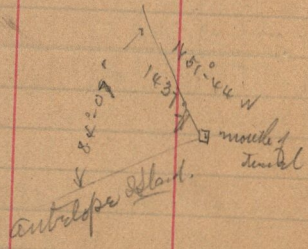 N51°-44'W
1437'
84°-09'
mouth of
tunnel
antelope Island.